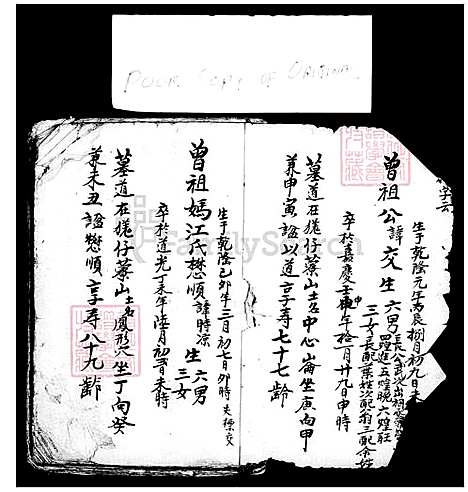 POOR COPY OF ORIGINAL
FamilySearch
生于乾隆元年丙辰捌月初九日未
曾祖公諱交生六男
三女長配葉姓次配翁三配余姓
卒於嘉慶壬申年拾月廿九日申時
墓道在桃仔藔山土名中心崙坐庚向甲
兼申寅諡以道享寿七十七齡
生于乾隆己卯年三月初七日卯時
曾祖媽江氏懋順諱時凉生六男
三女
卒於道光丁未年陸月初
未時
墓道在桃仔藔山土名鳳形穴坐丁向癸
兼未丑諡懋順享寿八十九齡